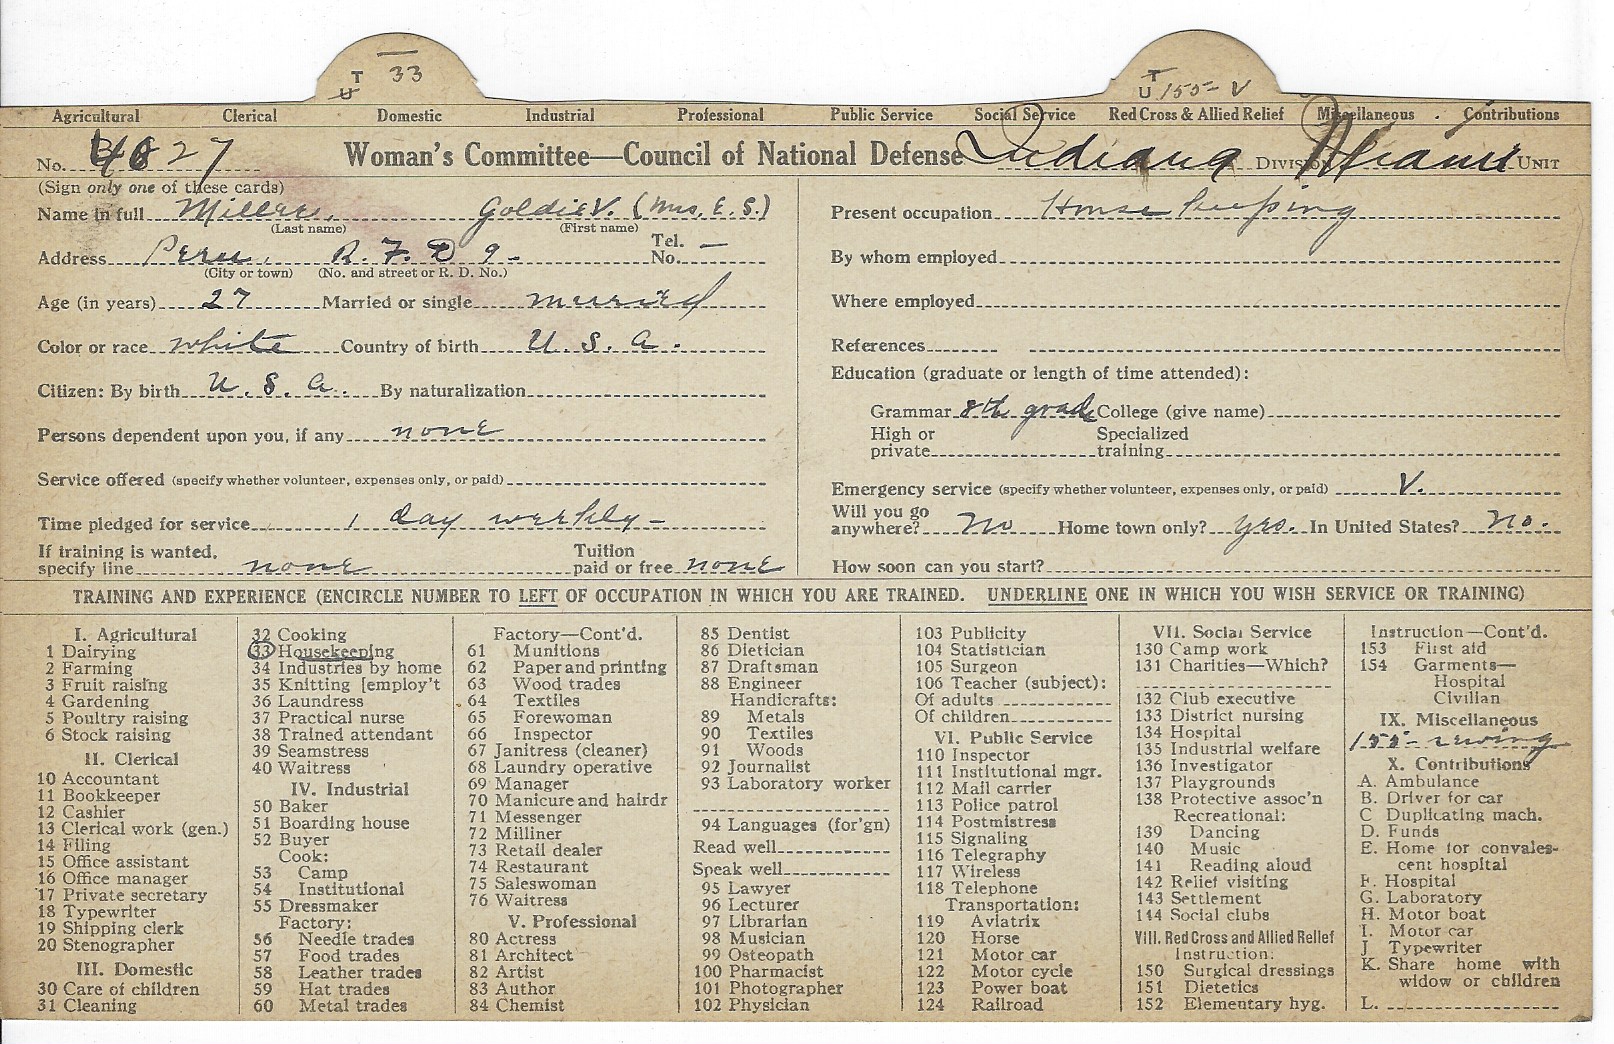 T 33
U
T
U 155- V
Agricultural Clerical Domestic Industrial Professional Public Service Social Service Red Cross & Allied Relief Miscellaneous . Contributions
No. 4827 Woman's Committee—Council of National Defense Indiana Division Miami Unit
(Sign only one of these cards)
Name in full Miller, Goldie V. (Mrs. E. S.)
(Last name) (First name)
Address Peru, R. F. D 9- Tel. No. —
(City or town) (No. and street or R. D. No.)
Age (in years) 27 Married or single married
Color or race white Country of birth U. S. a.
Citizen: By birth U. S. a. By naturalization
Persons dependent upon you, if any none
Service offered (specify whether volunteer, expenses only, or paid)
Time pledged for service 1 day weekly-
If training is wanted, specify line none Tuition paid or free none
Present occupation House keeping
By whom employed
Where employed
References
Education (graduate or length of time attended):
Grammar 8th grade College (give name)
High or private Specialized training
Emergency service (specify whether volunteer, expenses only, or paid) V.
Will you go anywhere? No Home town only? yes. In United States? No.
How soon can you start?
TRAINING AND EXPERIENCE (ENCIRCLE NUMBER TO LEFT OF OCCUPATION IN WHICH YOU ARE TRAINED. UNDERLINE ONE IN WHICH YOU WISH SERVICE OR TRAINING)
I. Agricultural
1 Dairying
2 Farming
3 Fruit raising
4 Gardening
5 Poultry raising
6 Stock raising
II. Clerical
10 Accountant
11 Bookkeeper
12 Cashier
13 Clerical work (gen.)
14 Filing
15 Office assistant
16 Office manager
17 Private secretary
18 Typewriter
19 Shipping clerk
20 Stenographer
III. Domestic
30 Care of children
31 Cleaning
32 Cooking
33 Housekeeping
34 Industries by home
35 Knitting [employ't
36 Laundress
37 Practical nurse
38 Trained attendant
39 Seamstress
40 Waitress
IV. Industrial
50 Baker
51 Boarding house
52 Buyer
Cook:
53 Camp
54 Institutional
55 Dressmaker
Factory:
56 Needle trades
57 Food trades
58 Leather trades
59 Hat trades
60 Metal trades
Factory—Cont'd.
61 Munitions
62 Paper and printing
63 Wood trades
64 Textiles
65 Forewoman
66 Inspector
67 Janitress (cleaner)
68 Laundry operative
69 Manager
70 Manicure and hairdr
71 Messenger
72 Milliner
73 Retail dealer
74 Restaurant
75 Saleswoman
76 Waitress
V. Professional
80 Actress
81 Architect
82 Artist
83 Author
84 Chemist
85 Dentist
86 Dietician
87 Draftsman
88 Engineer
Handicrafts:
89 Metals
90 Textiles
91 Woods
92 Journalist
93 Laboratory worker
94 Languages (for'gn)
Read well
Speak well
95 Lawyer
96 Lecturer
97 Librarian
98 Musician
99 Osteopath
100 Pharmacist
101 Photographer
102 Physician
103 Publicity
104 Statistician
105 Surgeon
106 Teacher (subject):
Of adults
Of children
VI. Public Service
110 Inspector
111 Institutional mgr.
112 Mail carrier
113 Police patrol
114 Postmistress
115 Signaling
116 Telegraphy
117 Wireless
118 Telephone
Transportation:
119 Aviatrix
120 Horse
121 Motor car
122 Motor cycle
123 Power boat
124 Railroad
VII. Social Service
130 Camp work
131 Charities—Which?
132 Club executive
133 District nursing
134 Hospital
135 Industrial welfare
136 Investigator
137 Playgrounds
138 Protective assoc'n
Recreational:
139 Dancing
140 Music
141 Reading aloud
142 Relief visiting
143 Settlement
144 Social clubs
VIII. Red Cross and Allied Relief
Instruction:
150 Surgical dressings
151 Dietetics
152 Elementary hyg.
Instruction—Cont'd.
153 First aid
154 Garments—
Hospital
Civilian
IX. Miscellaneous
155- sewing
X. Contributions
A. Ambulance
B. Driver for car
C Duplicating mach.
D. Funds
E. Home for convales-
cent hospital
F. Hospital
G. Laboratory
H. Motor boat
I. Motor car
J. Typewriter
K. Share home with
widow or children
L.